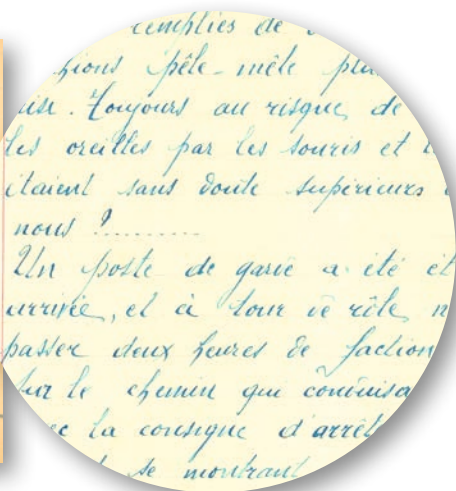 remplies de
pêle-mêle
Toujours au risque, de
les oreilles par les souris et
étaient sans doute supérieurs
nous ?..........
Un poste de garde a été
arrivée, et à tour de rôle,
passer deux heures de faction
sur le chemin qui
la consigne
se montrant